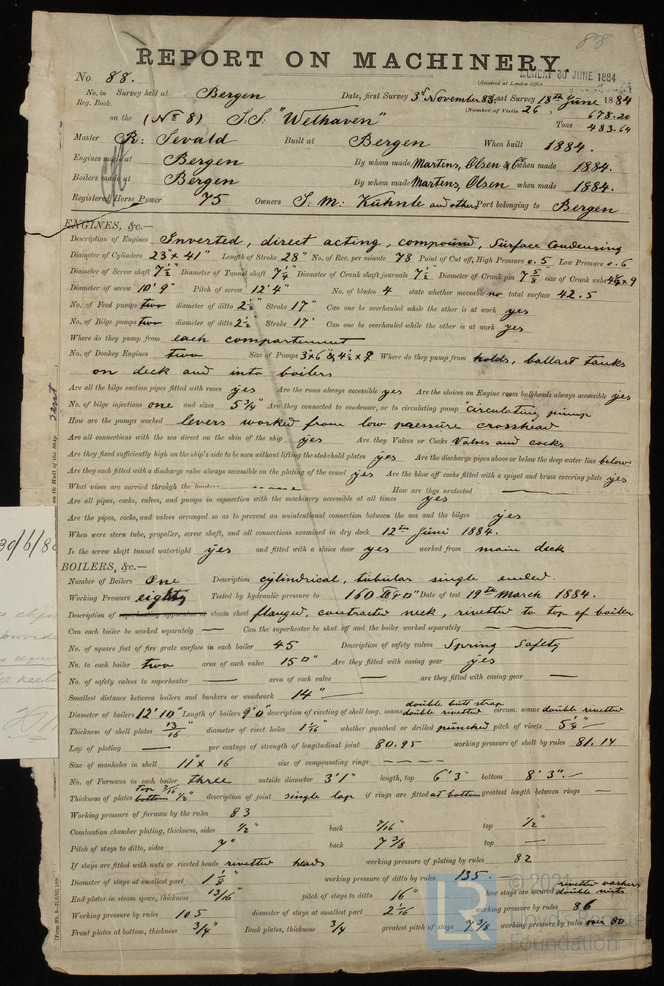 88
REPORT ON MACHINERY.
No. 88.
30 JUNE 1884
(Received at London Office
No. in Reg. Book. Survey held at Bergen Date, first Survey 3rd November 83. Last Survey 18th June 1884
(Number of Visits 26)
on the (No 8) S.S. "Welhaven" Tons 678.20 483.64
Master R. Sevald Built at Bergen When built 1884.
Engines made at Bergen By whom made Martens, Olsen & Co when made 1884.
Boilers made at Bergen By whom made Martens, Olsen when made 1884.
Registered Horse Power 75 Owners J. M. Kahnle and others Port belonging to Bergen
ENGINES, &c.—
Description of Engines Inverted, direct acting, compound, Surface Condensing
Diameter of Cylinders 23" x 41" Length of Stroke 28" No. of Rev. per minute 78 Point of Cut off, High Pressure 0.5 Low Pressure 0.6
Diameter of Screw shaft 7½ Diameter of Tunnel shaft 7¼ Diameter of Crank shaft journals 7½ Diameter of Crank pin 7⅝ size of Crank webs 4¾ x 9
Diameter of screw 10' 9" Pitch of screw 12' 4" No. of blades 4 state whether moveable no total surface 42.5
No. of Feed pumps two diameter of ditto 2½" Stroke 17" Can one be overhauled while the other is at work yes
No. of Bilge pumps two diameter of ditto 2½ Stroke 17" Can one be overhauled while the other is at work yes
Where do they pump from each compartment
No. of Donkey Engines two Size of Pumps 3x6 & 4½ x 9 Where do they pump from holds, ballast tanks
on deck and into boilers
Are all the bilge suction pipes fitted with roses yes Are the roses always accessible yes Are the sluices on Engine room bulkheads always accessible yes
No. of bilge injections one and sizes 5¾" Are they connected to condenser, or to circulating pump circulating pump
How are the pumps worked levers worked from low pressure crosshead
Are all connections with the sea direct on the skin of the ship yes Are they Valves or Cocks Valves and cocks
Are they fixed sufficiently high on the ship's side to be seen without lifting the stokehold plates yes Are the discharge pipes above or below the deep water line below
Are they each fitted with a discharge valve always accessible on the plating of the vessel yes Are the blow off cocks fitted with a spigot and brass covering plate yes
What pipes are carried through the bunkers none How are they protected —
Are all pipes, cocks, valves, and pumps in connection with the machinery accessible at all times yes
Are the pipes, cocks, and valves arranged so as to prevent an unintentional connection between the sea and the bilges yes
When were stern tube, propeller, screw shaft, and all connections examined in dry dock 12th Juni 1884.
Is the screw shaft tunnel watertight yes and fitted with a sluice door yes worked from main deck
BOILERS, &c.—
Number of Boilers One Description cylindrical, tubular single ended.
Working Pressure eighty Tested by hydraulic pressure to 160 Date of test 19th March 1884.
Description of superheating apparatus or steam chest flanged, contracted neck, rivetted to top of boiler
Can each boiler be worked separately — Can the superheater be shut off and the boiler worked separately —
No. of square feet of fire grate surface in each boiler 45 Description of safety valves Spring Safety
No. to each boiler two area of each valve 15□" Are they fitted with easing gear yes
No. of safety valves to superheater — area of each valve — are they fitted with easing gear —
Smallest distance between boilers and bunkers or woodwork 14"
Diameter of boilers 12' 10" Length of boilers 9' 0" description of riveting of shell long. seams double butt strap double rivetted circum. seams double rivetted
Thickness of shell plates 13/16" diameter of rivet holes 1 1/16" whether punched or drilled punched pitch of rivets 5¼"
Lap of plating — per centage of strength of longitudinal joint 80.95 working pressure of shell by rules 81.14
Size of manholes in shell 11" x 16 size of compensating rings ————
No. of Furnaces in each boiler three outside diameter 3' 1" length, top 6' 3" bottom 8' 3".
Thickness of plates top 7/16 bottom ½" description of joint single lap if rings are fitted at bottom greatest length between rings —
Working pressure of furnace by the rules 83
Combustion chamber plating, thickness, sides ½" back 7/16" top ½"
Pitch of stays to ditto, sides 7" back 7⅜ top —
If stays are fitted with nuts or riveted heads rivetted heads working pressure of plating by rules 82
Diameter of stays at smallest part 1⅛" working pressure of ditto by rules 135. rivetted washers
End plates in steam space, thickness 13/16" pitch of stays to ditto 16" how stays are secured double nuts
Working pressure by rules 105 diameter of stays at smallest part 2 1/16 working pressure by rules 86
Front plates at bottom, thickness ¾" Back plates, thickness ¾ greatest pitch of stays 7⅜ working pressure by rules over 80
30/6/8
LR © 2021
Lloyd's Register
Foundation